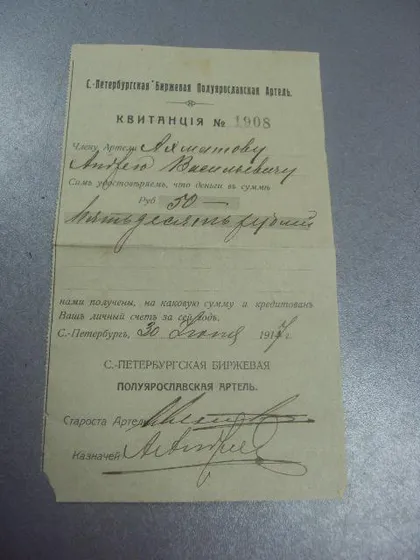 С.-Петербургская Биржевая Полуярославская Артель.
КВИТАНЦІЯ № 1908
Члену Артели Ахматову
Андрею Васильевичу
Симъ удостовѣряемъ, что деньги въ суммѣ
Руб 50 —
Пятьдесятъ рублей
нами получены, на каковую сумму и кредитованъ
Вашъ личный счетъ за сей годъ.
С.-Петербургъ, 30 Іюня 1917 г.
С.-ПЕТЕРБУРГСКАЯ БИРЖЕВАЯ
ПОЛУЯРОСЛАВСКАЯ АРТЕЛЬ.
Староста Артели
Казначей